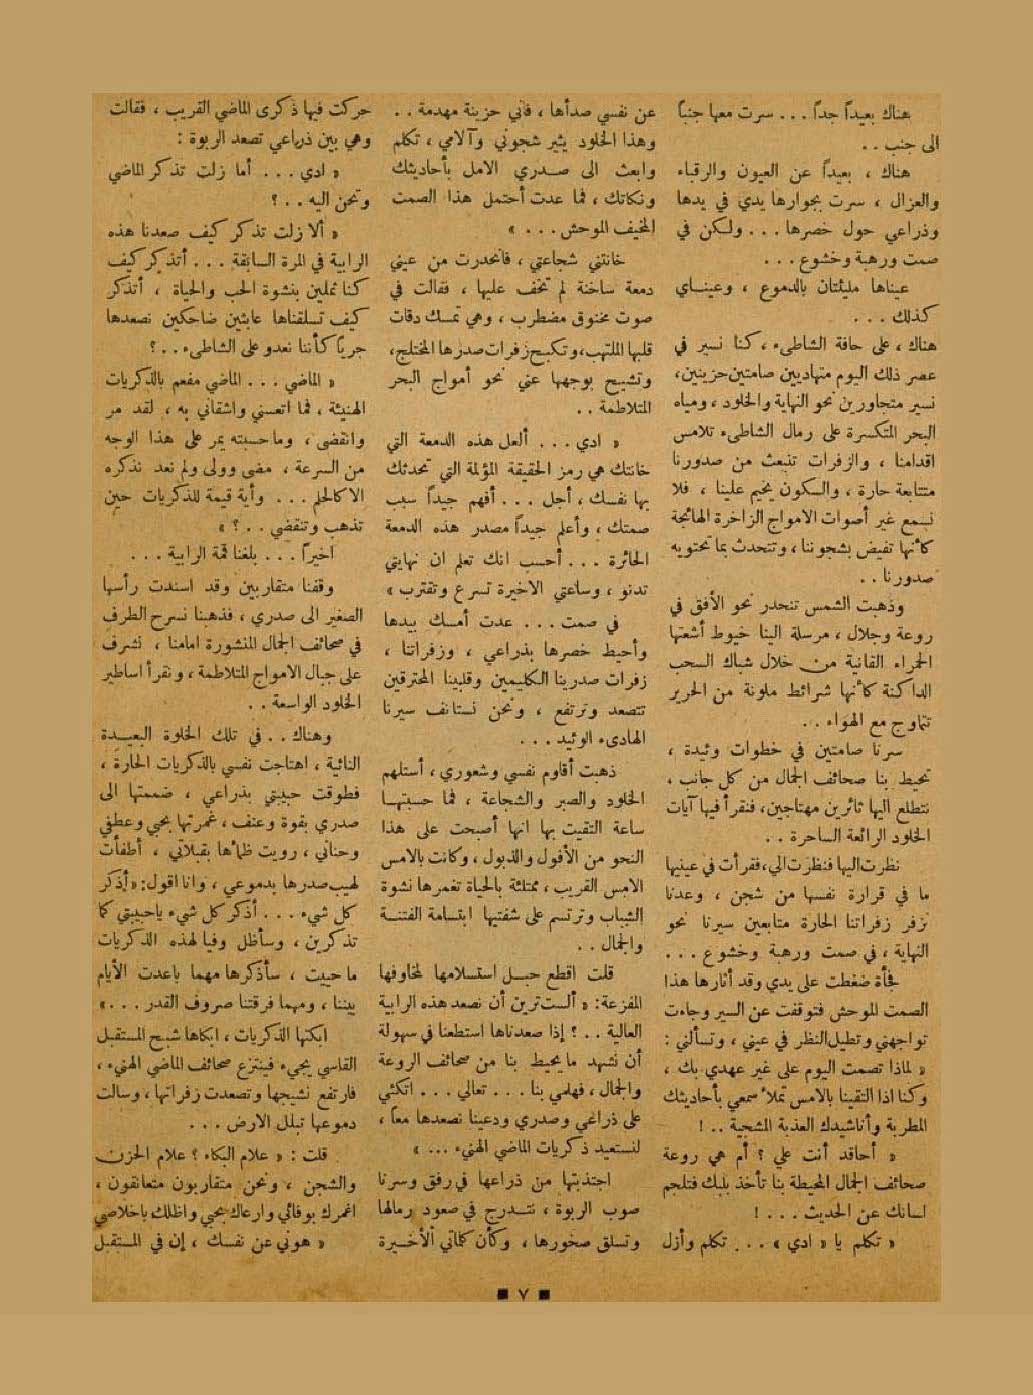 هناك بعيداً جداً ... سرت معها جنباً
الى جنب ..
هناك ، بعيداً عن العيون والرقباء
والعزال ، سرت بجوارها يدي في يدها
وذراعي حول خصرها ... ولكن في
صمت ورهبة وخشوع ...
عيناها مليئتان بالدموع ، وعيناي
كذلك ...
هناك ، على حافة الشاطىء ، كنا نسير في
عصر ذلك اليوم متهاديين صامتين حزينين ،
نسير متجاورين نحو النهاية والخلود ، ومياه
البحر المتكسرة على رمال الشاطىء تلامس
اقدامنا ، والزفرات تنبعث من صدورنا
متتابعة حارة ، والسكون يخيم علينا ، فلا
نسمع غير أصوات الامواج الزاخرة الهائجة
كأنها تفيض بشجوننا ، وتتحدث بما تحتويه
صدورنا ..
وذهبت الشمس تنحدر نحو الأفق في
روعة وجلال ، مرسلة الينا خيوط أشعتها
الحمراء القانية من خلال شباك السحب
الداكنة كأنها شرائط ملونة من الحرير
تتماوج مع الهواء ..
سرنا صامتين في خطوات وئيدة ،
تحيط بنا صحائف الجمال من كل جانب ،
نتطلع اليها ثائرين مهتاجين ، فنقرأ فيها آيات
الخلود الرائعة الساحرة ..
نظرت اليها فنظرت الي ، فقرأت في عينيها
ما في قرارة نفسها من شجن ، وعدنا
نزفر زفراتنا الحارة متابعين سيرنا نحو
النهاية ، في صمت ورهبة وخشوع ...
فجأة ضغطت على يدي وقد أثارها هذا
الصمت الموحش فتوقفت عن السير وجاءت
تواجهني وتطيل النظر في عيني ، وتسألني :
« لماذا تصمت اليوم على غير عهدي بك ،
وكنا اذا التقينا بالامس تملأ سمعي بأحاديثك
المطربة وأناشيدك العذبة المشجية .. !
« أحاقد أنت علي ؟ أم هي روعة
صحائف الجمال المحيطة بنا تأخذ بلبك فتلجم
لسانك عن الحديث ... !
« تكلم يا « ادي » ... تكلم وأزل
عن نفسي صدأها ، فاني حزينة مهدمة ..
وهذا الخلود يثير شجوني وآلامي ، تكلم
وابعث الى صدري الامل بأحاديثك
ونكاتك ، فما عدت أحتمل هذا الصمت
المخيف الموحش ... »
خانتني شجاعتي ، فانحدرت من عيني
دمعة ساخنة لم تخف عليها ، فقالت في
صوت مخنوق مضطرب ، وهي تمسك دقات
قلبها الملتهب ، وتكبح زفرات صدرها المختلج ،
وتشيح بوجهها عني نحو أمواج البحر
المتلاطمة ..
« ادي ... ألعل هذه الدمعة التي
خانتك هي رمز الحقيقة المؤلمة التي تحدثك
بها نفسك ، أجل ... أفهم جيداً سبب
صمتك ، وأعلم جيداً مصدر هذه الدمعة
الحائرة ... أحسب انك تعلم ان نهايتي
تدنو ، وساعتي الاخيرة تسرع وتقترب »
في صمت ... عدت أمسك بيدها
وأحيط خصرها بذراعي ، وزفراتنا ،
زفرات صدرينا الكليمين وقلبينا المحترقين
تتصعد وترتفع ، ونحن نستانف سيرنا
الهادىء الوئيد ...
ذهبت أقاوم نفسي وشعوري ، أستلهم
الخلود والصبر والشجاعة ، فما حسبتها
ساعة التقيت بها انها أصبحت على هذا
النحو من الأفول والذبول ، وكانت بالامس
الامس القريب ، ممتلئة بالحياة تغمرها نشوة
الشباب وترتسم على شفتيها ابتسامة الفتنة
والجمال ..
قلت اقطع حبل استسلامها لمخاوفها
المفزعة : « ألست ترين أن نصعد هذه الرابية
العالية .. ؟ إذا صعدناها استطعنا في سهولة
أن نشهد ما يحيط بنا من صحائف الروعة
والجمال ، فهلمي بنا ... تعالي ... اتكئي
على ذراعي وصدري ودعينا نصعدها معاً ،
لنستعيد ذكريات الماضي الهنيء ... »
اجتذبتها من ذراعها في رفق وسرنا
صوب الربوة ، نتدرج في صعود رمالها
وتسلق صخورها ، وكأن كلماتي الأخيرة
حركت فيها ذكرى الماضي القريب ، فقالت
وهي بين ذراعي تصعد الربوة :
« ادي ... أما زلت تذكر الماضي
ونحن اليه .. ؟
« ألا زلت تذكر كيف صعدنا هذه
الرابية في المرة السابقة ... أتذكر كيف
كنا ثملين بنشوة الحب والحياة ، أتذكر
كيف تسلقناها عابثين ضاحكين نصعدها
جرياً كأننا نعدو على الشاطىء .. ؟
« الماضي ... الماضي مفعم بالذكريات
الهنيئة ، فما اتعسني واشقاني به ، لقد مر
وانقضى ، وما حسبته يمر على هذا الوجه
من السرعة ، مضى وولى ولم نعد نذكره
الا كالحلم ... وأية قيمة للذكريات حين
تذهب وتنقضي .. ؟ »
اخيراً ... بلغنا قمة الرابية ...
وقفنا متقاربين وقد اسندت رأسها
الصغير الى صدري ، فذهبنا نسرح الطرف
في صحائف الجمال المنشورة امامنا ، نشرف
على جبال الامواج المتلاطمة ، ونقرأ اساطير
الخلود الواسعة ..
وهناك .. في تلك الخلوة البعيدة
النائية ، اهتاجت نفسي بالذكريات الحارة ،
فطوقت حبيبتي بذراعي ، ضممتها الى
صدري بقوة وعنف ، غمرتها بحبي وعطفي
وحناني ، رويت ظمأها بقبلاتي ، أطفأت
لهيب صدرها بدموعي ، وانا اقول : « أذكر
كل شيء ... أذكر كل شيء ياحبيبتي كما
تذكرين ، وسأظل وفيا لهذه الذكريات
ما حييت ، سأذكرها مهما باعدت الأيام
بيننا ، ومهما فرقتنا صروف القدر ... »
ابكتها الذكريات ، ابكاها شبح المستقبل
القاسي يجيء فينتزع صحائف الماضي الهنيء ،
فارتفع نشيجها وتصعدت زفراتها ، وسالت
دموعها تبلل الارض ...
قلت : « علام البكاء ؟ علام الحزن
والشجن ، ونحن متقاربون متعانقون ،
اغمرك بوفائي وارعاك بحبي واظلك باخلاصي
« هوني عن نفسك ، إن في المستقبل
■ ٧ ■